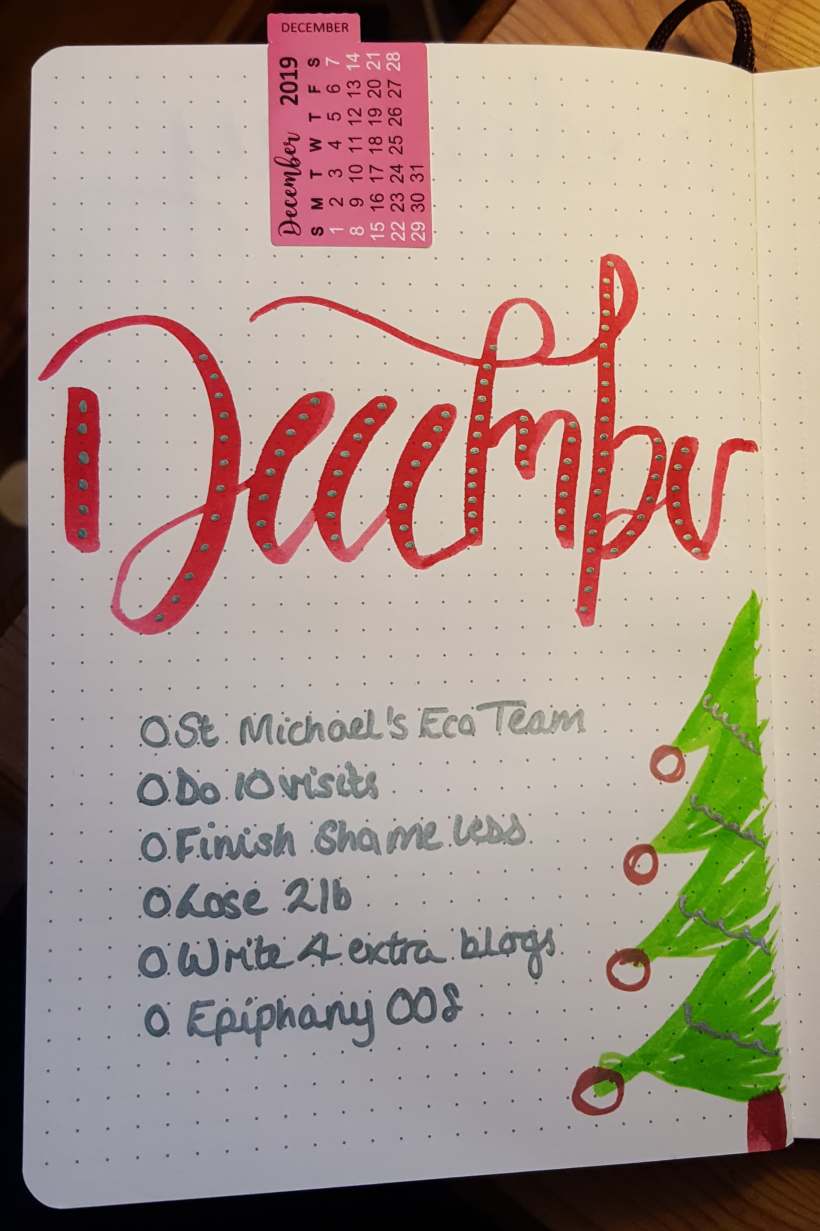 DECEMBER
December 2019
S M T W T F S
1 2 3 4 5 6 7
8 9 10 11 12 13 14
15 16 17 18 19 20 21
22 23 24 25 26 27 28
29 30 31
December
O St Michael's Eco Team
O Do 10 visits
O Finish Shameless
O Lose 2lb
O Write 4 extra blogs
O Epiphany OOS